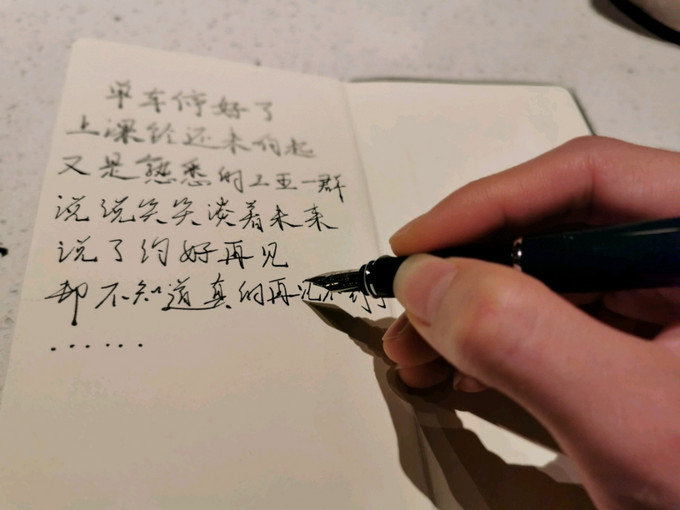 单车停好了
上课铃还未响起
又是熟悉的三五一群
说说笑笑谈着未来
说了约好再见
却不知道真的再见不到了
……